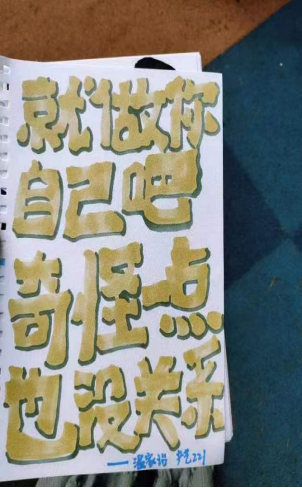 就做你
自己吧
奇怪点
也没关系